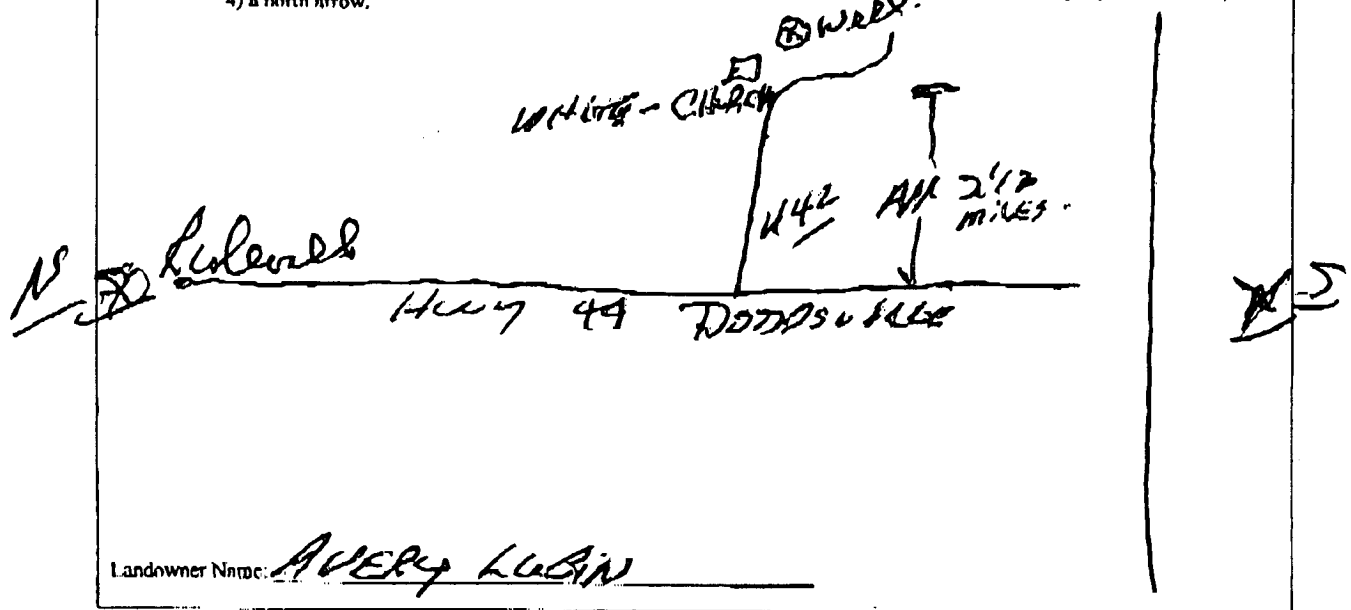 4) a north arrow.
⊗ Well.
WHITE - CHURCH
442 App 2 1/2
miles.
N Ruleville
Hwy 49 DODDSVILLE
S
Landowner Name: AVERY LUBIN